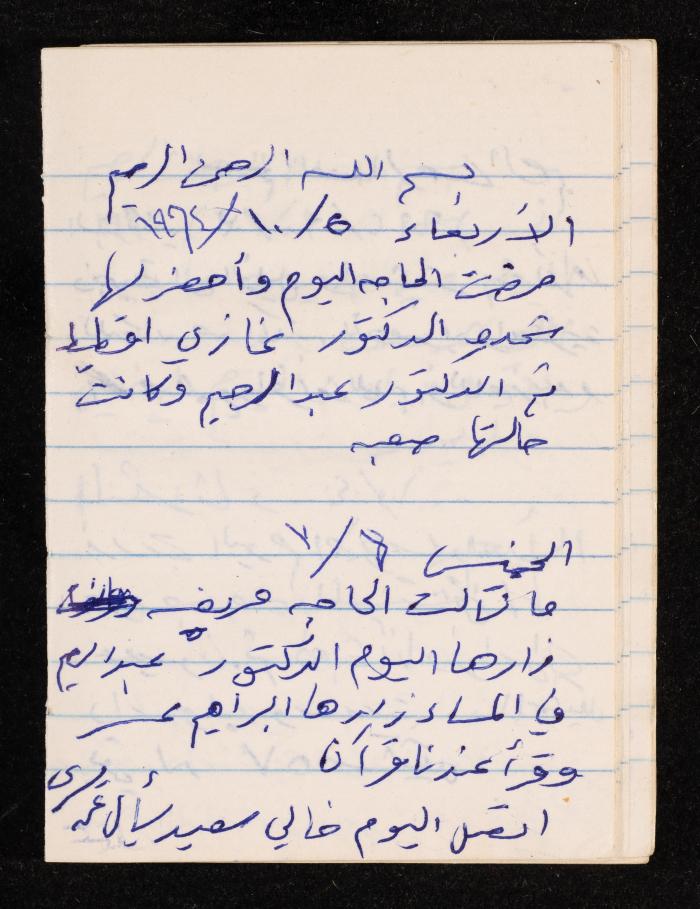 بسم الله الرحمن الرحيم
الأربعاء ٥/١٠/١٩٦٤
مرضت الحاجه اليوم وأحضر لها
الدكتور غازي
ثم الدكتور عبد الرحيم وكانت
حالتها صعبه
الخميس
ما زالت الحاجه مريضه
زارها اليوم الدكتور عبد الرحيم
في المساء زارها ابراهيم
وقرأ عندنا قرآن
اتصل اليوم خالي سعيد يسأل عن